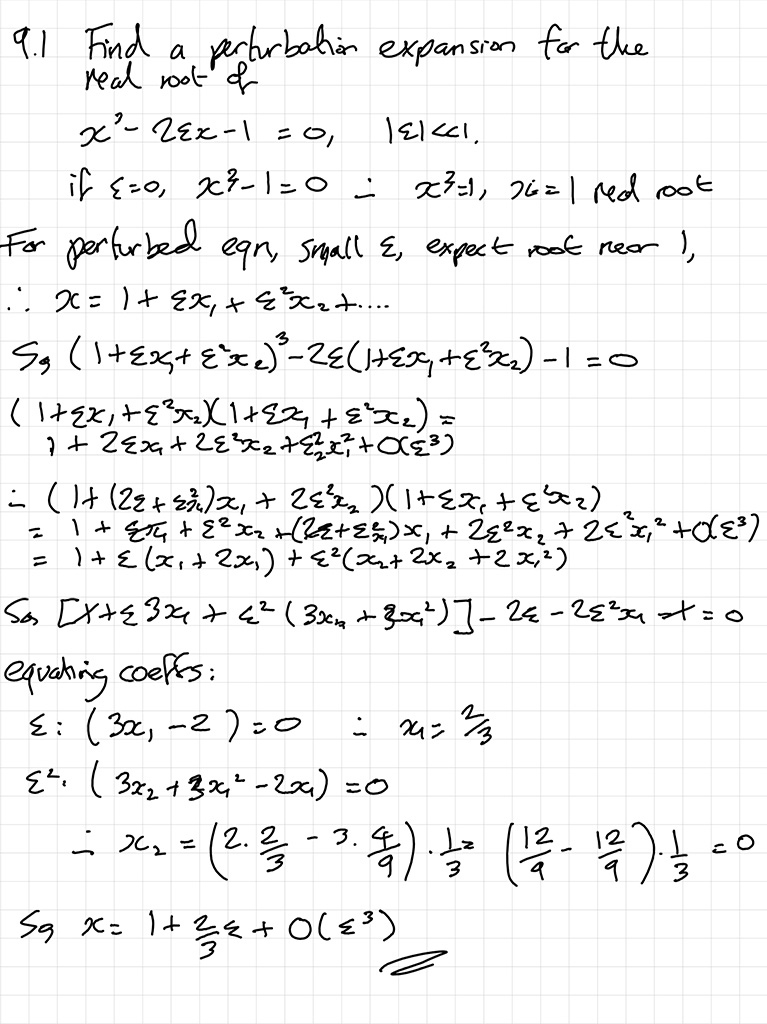 9.1 Find a perturbation expansion for the
real root of
x³ - 2εx - 1 = 0, |ε| << 1.
if ε=0, x³-1=0 ∴ x³=1, x=1 real root
For perturbed eqn, small ε, expect root near 1,
∴ x = 1 + εx₁ + ε²x₂ + ....
So, (1+εx₁+ε²x₂)³ - 2ε(1+εx₁+ε²x₂) - 1 = 0
(1+εx₁+ε²x₂)(1+εx₁+ε²x₂) =
1 + 2εx₁ + 2ε²x₂ + ε²x₁² + O(ε³)
∴ (1+(2ε+ε²x₁)x₁ + 2ε²x₂)(1+εx₁+ε²x₂)
= 1 + εx₁ + ε²x₂ + (2ε+ε²x₁)x₁ + 2ε²x₂ + 2ε²x₁² + O(ε³)
= 1 + ε(x₁+2x₁) + ε²(x₂+2x₂+2x₁²)
So, [1+ε3x₁ + ε²(3x₂+3x₁²)] - 2ε - 2ε²x₁ - 1 = 0
equating coeffs:
ε: (3x₁ - 2) = 0 ∴ x₁ = 2/3
ε²: (3x₂ + 3x₁² - 2x₁) = 0
∴ x₂ = (2·2/3 - 3·4/9)·1/3 = (12/9 - 12/9)·1/3 = 0
So, x = 1 + 2/3 ε + O(ε³)